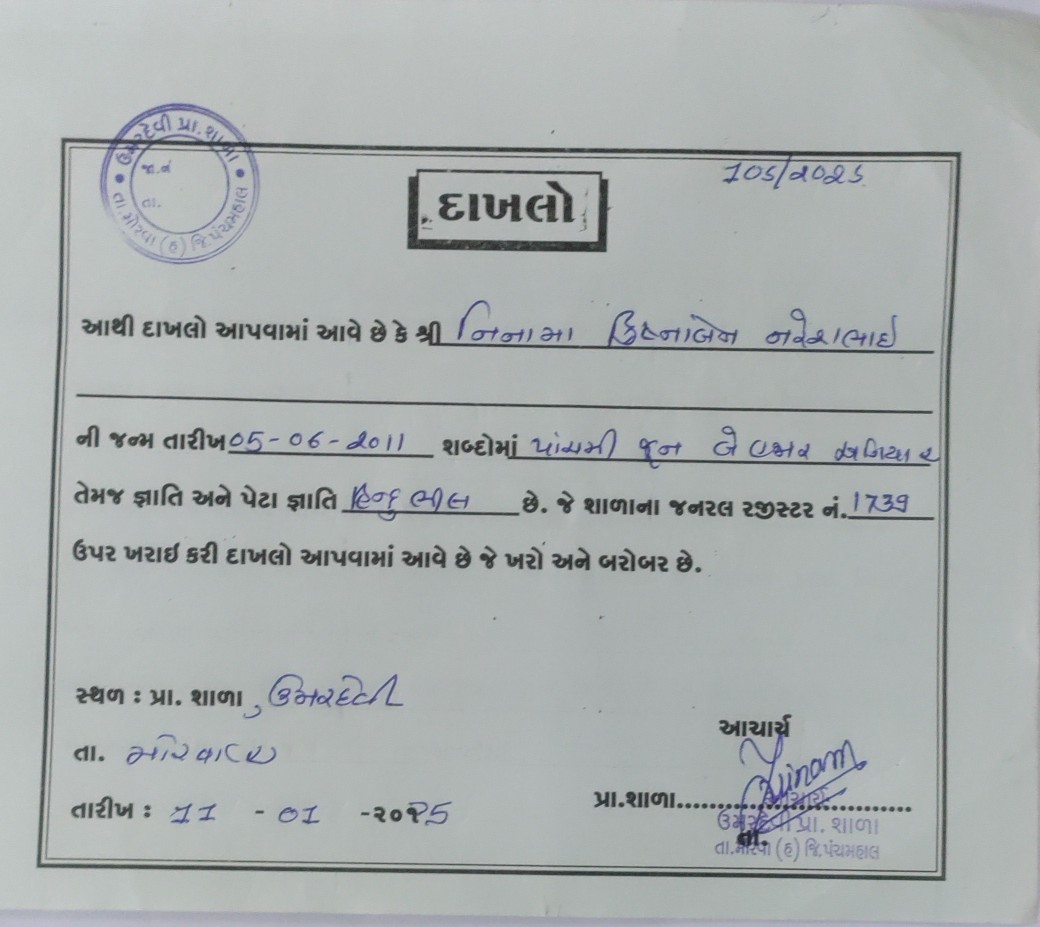 ઉમરદેવી પ્રા. શાળા
જા.નં
તા.
તા. મોરવા (હ) જિ.પંચમહાલ
105/2025
દાખલો
આથી દાખલો આપવામાં આવે છે કે શ્રી નિનામા ક્રિષ્નાબેન નરેશભાઇ
ની જન્મ તારીખ 05-06-2011 શબ્દોમાં પાંચમી જૂન બે હજાર અગિયાર
તેમજ જ્ઞાતિ અને પેટા જ્ઞાતિ હિન્દુ ભીલ છે. જે શાળાના જનરલ રજીસ્ટર નં. 1739
ઉપર ખરાઇ કરી દાખલો આપવામાં આવે છે જે ખરો અને બરોબર છે.
સ્થળ : પ્રા. શાળા, ઉમરદેવી
તા. મોરવા
તારીખ : 11 - 01 -૨૦25
આચાર્ય
પ્રા.શાળા................................
આચાર્ય
ઉમરદેવી પ્રા. શાળા
તા.
તા.મોરવા (હ) જિ.પંચમહાલ